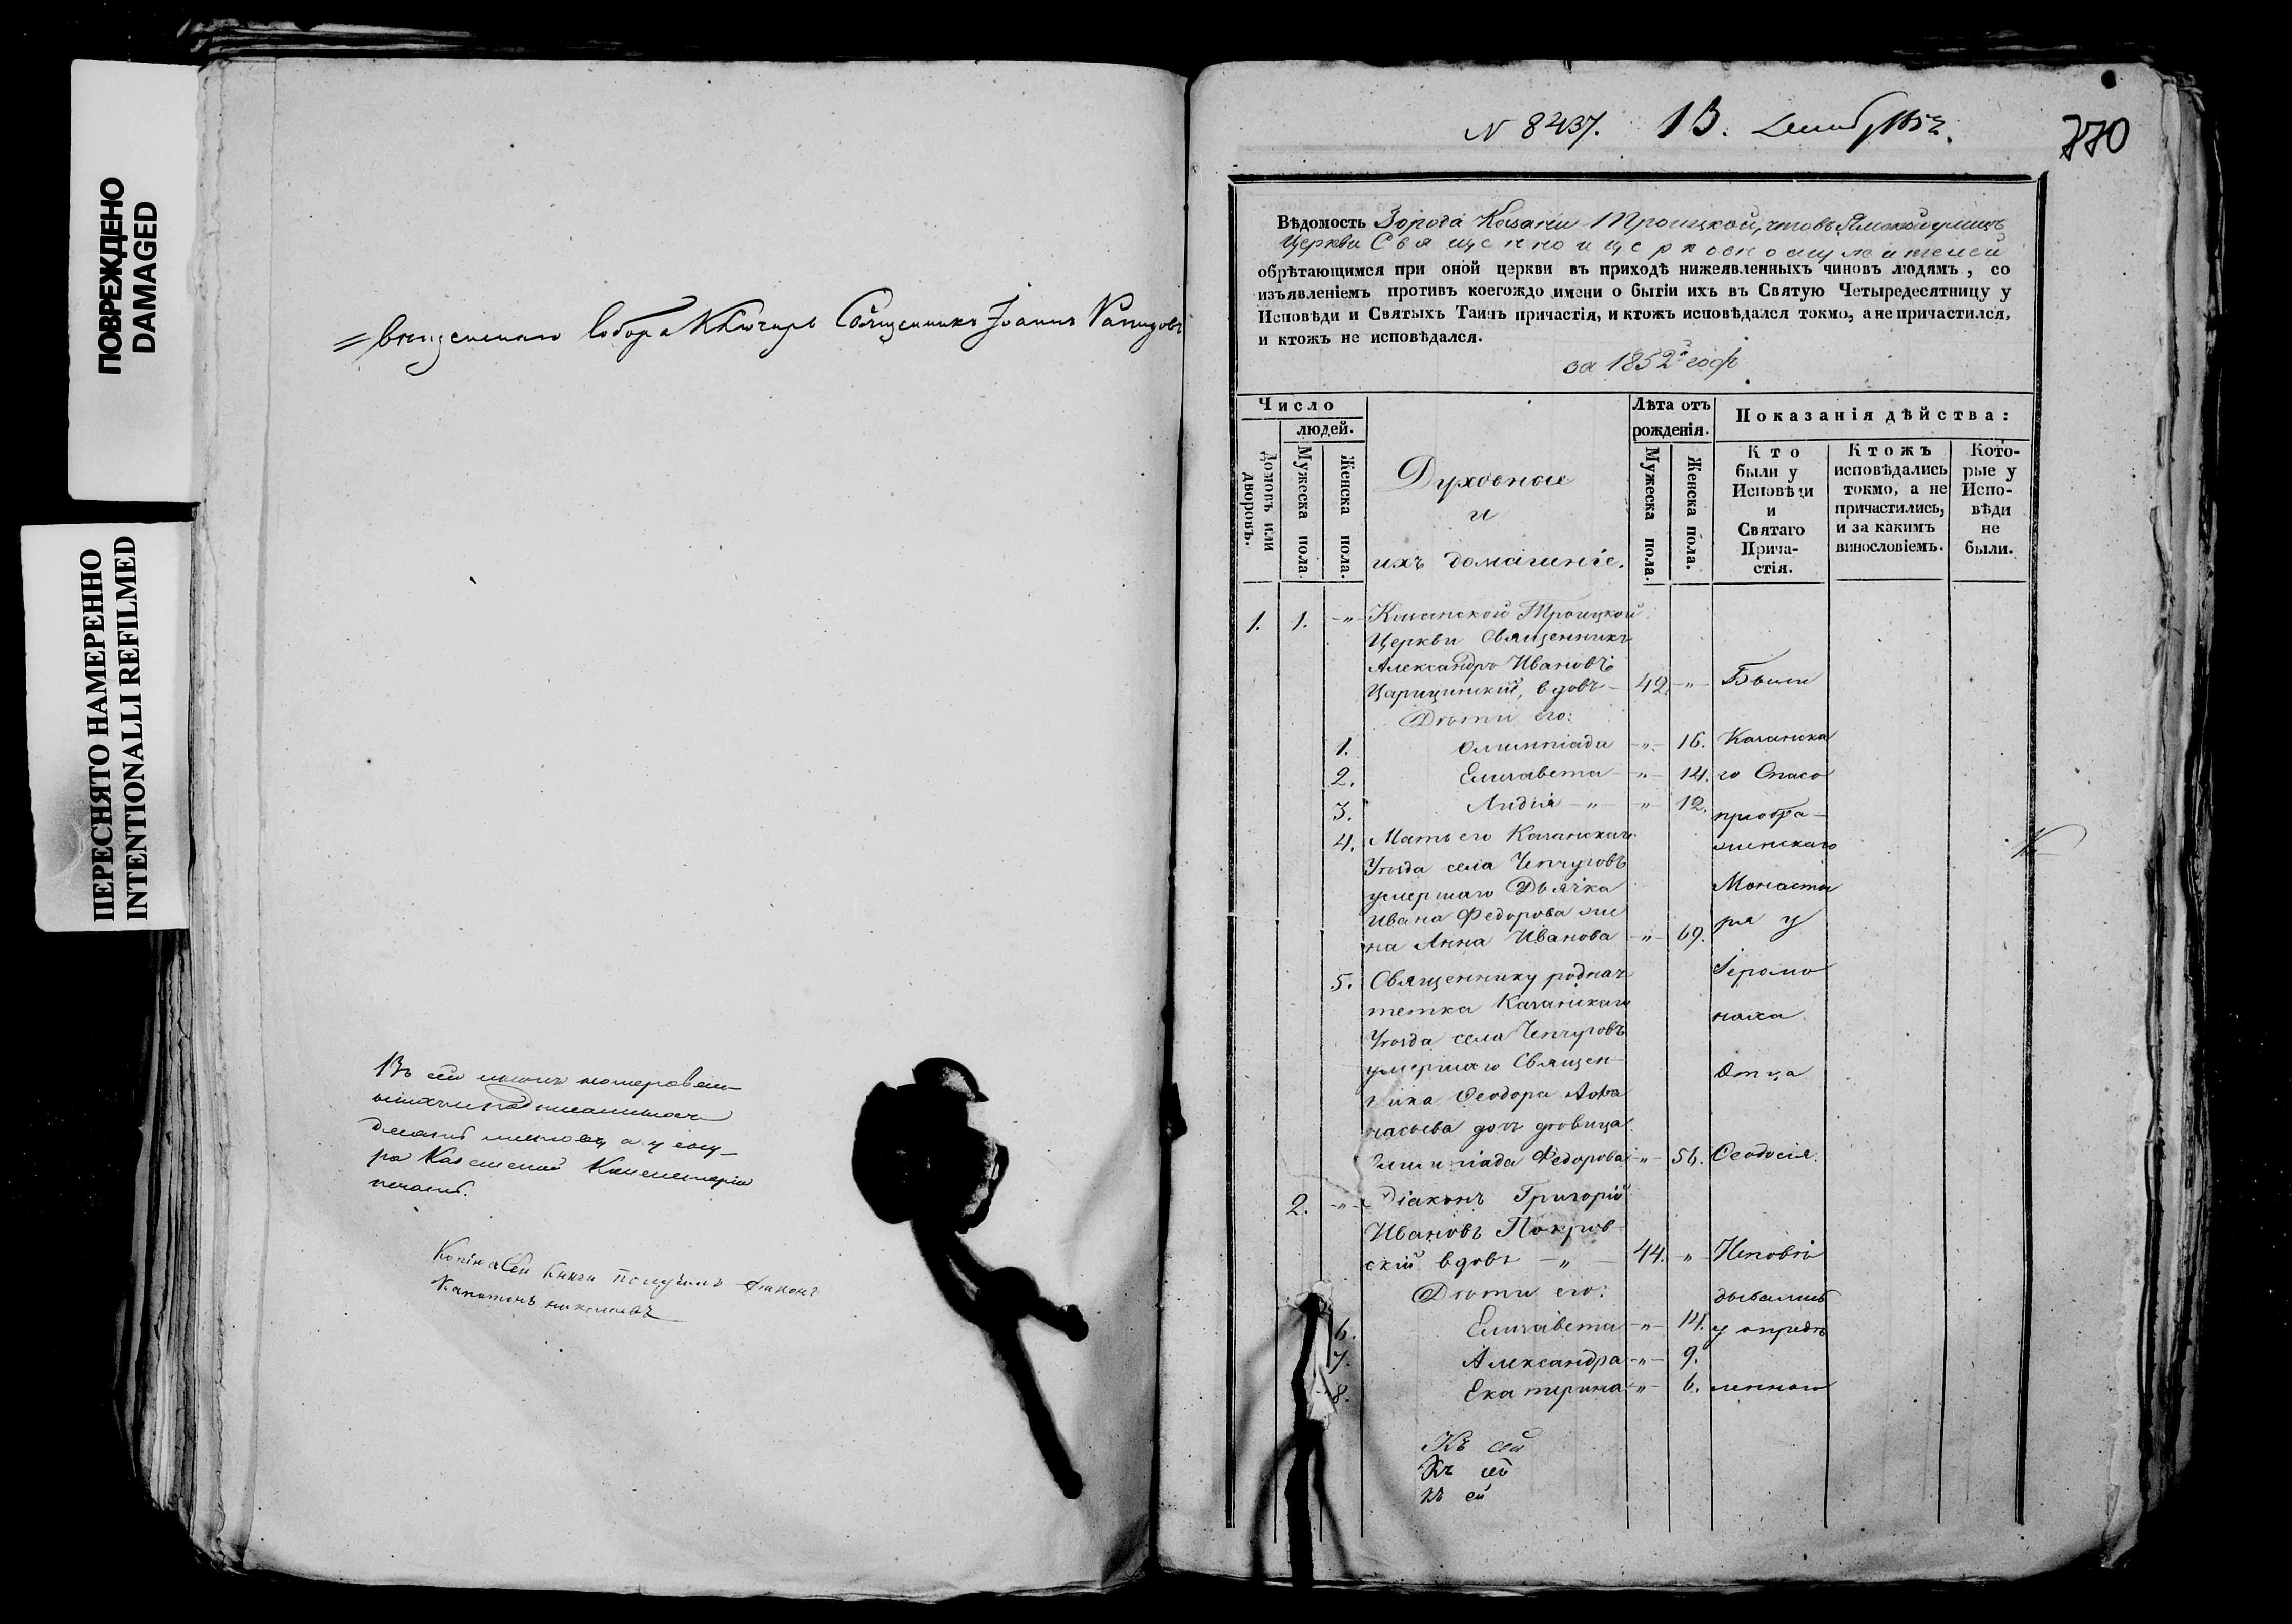 ПОВРЕЖДЕНО
DAMAGED
ПЕРЕСНЯТО НАМЕРЕННО
INTENTIONALLI REFILMED
Собора Ключарь Священникъ Іоаннъ
Въ сей книгѣ
печать.
Копію съ сей книги получилъ діаконъ
N 8437. 13. 1852.
770
Вѣдомость Города Казани Троицкой, что въ Ямской улицѣ
Церкви Священно и церковнослужителей
обрѣтающимся при оной церкви въ приходѣ нижеявленныхъ чиновъ людямъ, со
изъявленіемъ противъ коегождо имени о бытіи ихъ въ Святую Четыредесятницу у
Исповѣди и Святыхъ Таинъ причастія, и ктожъ исповѣдался токмо, а не причастился,
и ктожъ не исповѣдался.
за 1852й годъ
Число
людей.
Домовъ или дворовъ.
Мужеска пола.
Женска пола.
Духовные
и
ихъ домашніе.
Лѣта отъ
рожденія.
Мужеска пола.
Женска пола.
Показанія дѣйства:
Кто
были у
Исповѣди
и
Святаго
Прича-
стія.
Ктожъ
исповѣдались
токмо, а не
причастились,
и за какимъ
винословіемъ.
Кото-
рые у
Испо-
вѣди
не
были.
1. 1. -"- Казанской Троицкой
Церкви Священникъ
Александръ Ивановъ
Царицынскій, вдовъ - 42. -"- Были
Дѣти его:
1. Олимпіада -"- 16. Казанска
2. Елизавета -"- 14. го Спасо
3. Лидія -"- -"- 12. преобра-
4. Мать его Казанскаго женскаго
Уѣзда села Чепчуговъ
умершаго Дьячка Монасты
Ивана Федорова же
на Анна Иванова -"- 69. ря у
5. Священнику родная Іеромо
тетка Казанскаго
Уѣзда села Чепчуговъ наха
умершаго Священ-
ника Феодора Аѳа Отца
насьева дочь дѣвица
Олимпіада Федорова -"- 56. Феодосія.
2. -"- Діаконъ Григорій
Ивановъ Покров-
скій вдовъ -"- 44. " Исповѣ
Дѣти его: дывались
6. Елизавета -"- 14. у опредѣ
7. Александра -"- 9.
8. Екатерина -"- 6. леннаго
Къ сей
Къ сей
Къ сей